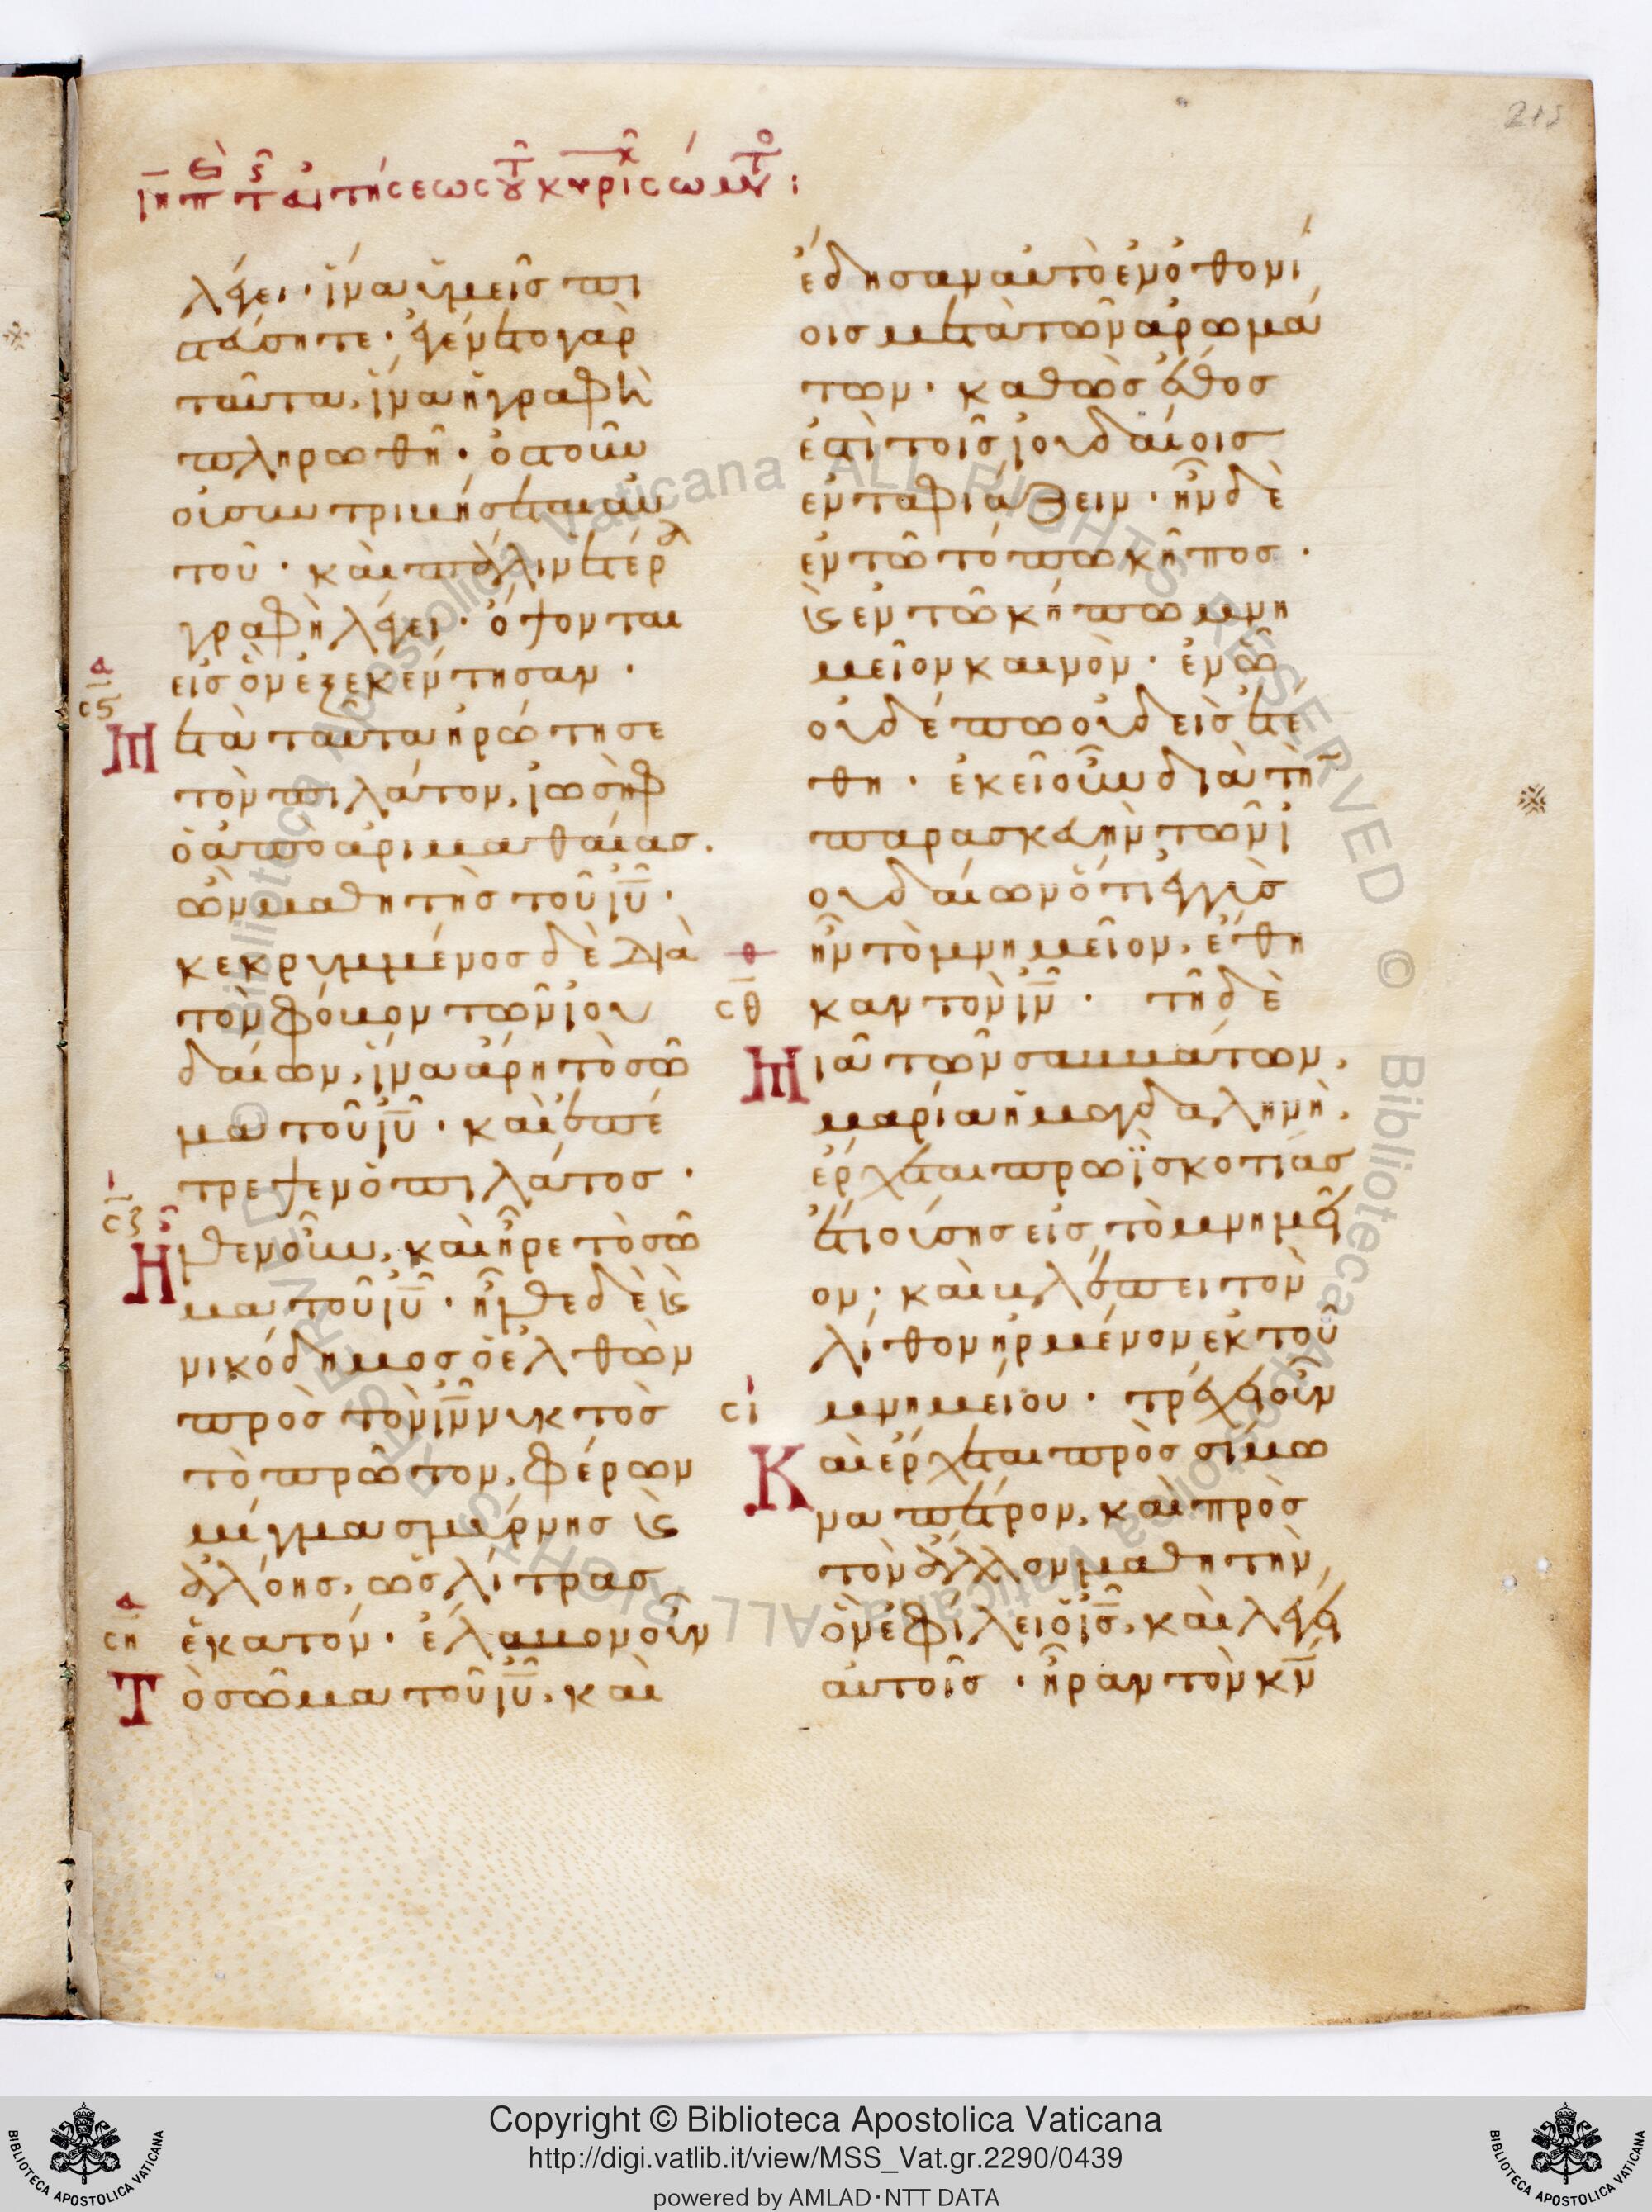 λέγει· ἵνα ὑμεῖς πι
στεύσητε· ἐγένετο γὰρ
ταῦτα, ἵνα ἡ γραφὴ
πληρωθῆ· ὀστοῦν
οὐ συντριβήσεται αὐ
τοῦ· καὶ πάλιν ἑτέρα
γραφὴ λέγει· ὄψονται
εἰς ὃν ἐξεκέντησαν·
Μετὰ ταῦτα ἠρώτησε
τὸν πιλάτον, ἰωσὴφ
ὁ ἀπὸ ἀριμαθαίας.
ὢν μαθητὴς τοῦ ἰῦ·
κεκρυμμένος δὲ διὰ
τὸν φόβον τῶν ἰου
δαίων, ἵνα ἄρη τὸ σῶ
μα τοῦ ἰῦ· καὶ ἐπέ
τρεψεν ὁ πιλάτος·
Ἦλθεν οὖν, καὶ ἦρε τὸ σῶ
μα τοῦ ἰῦ· ἦλθε δὲ ϗ
νικόδημος ὁ ἐλθὼν
πρὸς τὸν ἰν νυκτὸς
τὸ πρῶτον, φέρων
μίγμα σμύρνης ϗ
ἀλόης, ὡς λίτρας
ἑκατόν· ἔλαβον οὖν
Τὸ σῶμα τοῦ ἰῦ, καὶ
ἔδησαν αὐτὸ ἐν ὀθονί
οις μετὰ τῶν ἀρωμά
των· καθὼς ἔθος
ἐστὶ τοῖς ἰουδαίοις
ἐνταφιάζειν· ἦν δὲ
ἐν τῶ τόπω κῆπος·
ϗ ἐν τῶ κήπω μνη
μεῖον καινὸν· ἐν ῶ
οὐδέπω οὐδεὶς ἐτέ
θη· ἐκεῖ οὖν διὰ τὴν
παρασκευὴν τῶν ἰ
ουδαίων ὅτι ἐγγὺς
ἦν τὸ μνημεῖον, ἔθη
καν τὸν ἰν· τῆ δὲ
Μιᾶ τῶν σαββάτων,
μαρία ἡ μαγδαληνὴ,
ἔρχεται πρωῒ σκοτίας
ἔτι οὔσης εἰς τὸ μνημεῖ
ον· καὶ βλέπει τὸν
λίθον ἠρμένον ἐκ τοῦ
μνημείου· τρέχει οὖν
Καὶ ἔρχεται πρὸς σίμω
να πέτρον, καὶ πρὸς
τὸν ἄλλον μαθητὴν,
ὃν ἐφίλει ὁ ἰς, καὶ λέγει
αὐτοῖς· ἦραν τὸν κν
Copyright © Biblioteca Apostolica Vaticana
http://digi.vatlib.it/view/MSS_Vat.gr.2290/0439
powered by AMLAD·NTT DATA
BIBLIOTECA APOSTOLICA VATICANA
BIBLIOTECA APOSTOLICA VATICANA